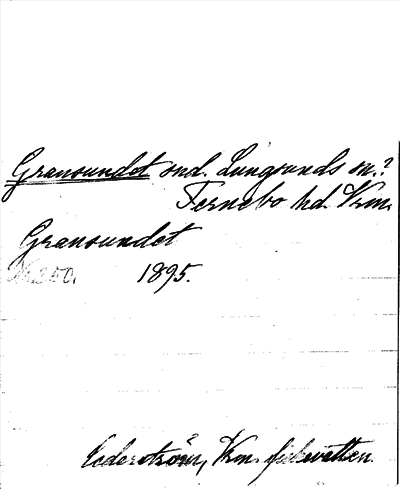 Gransundet snd. Lungsunds sn.?
Fernebo hd. Vrm.
Gransundet
1895.
Cederström, Vrm. fiskvatten.